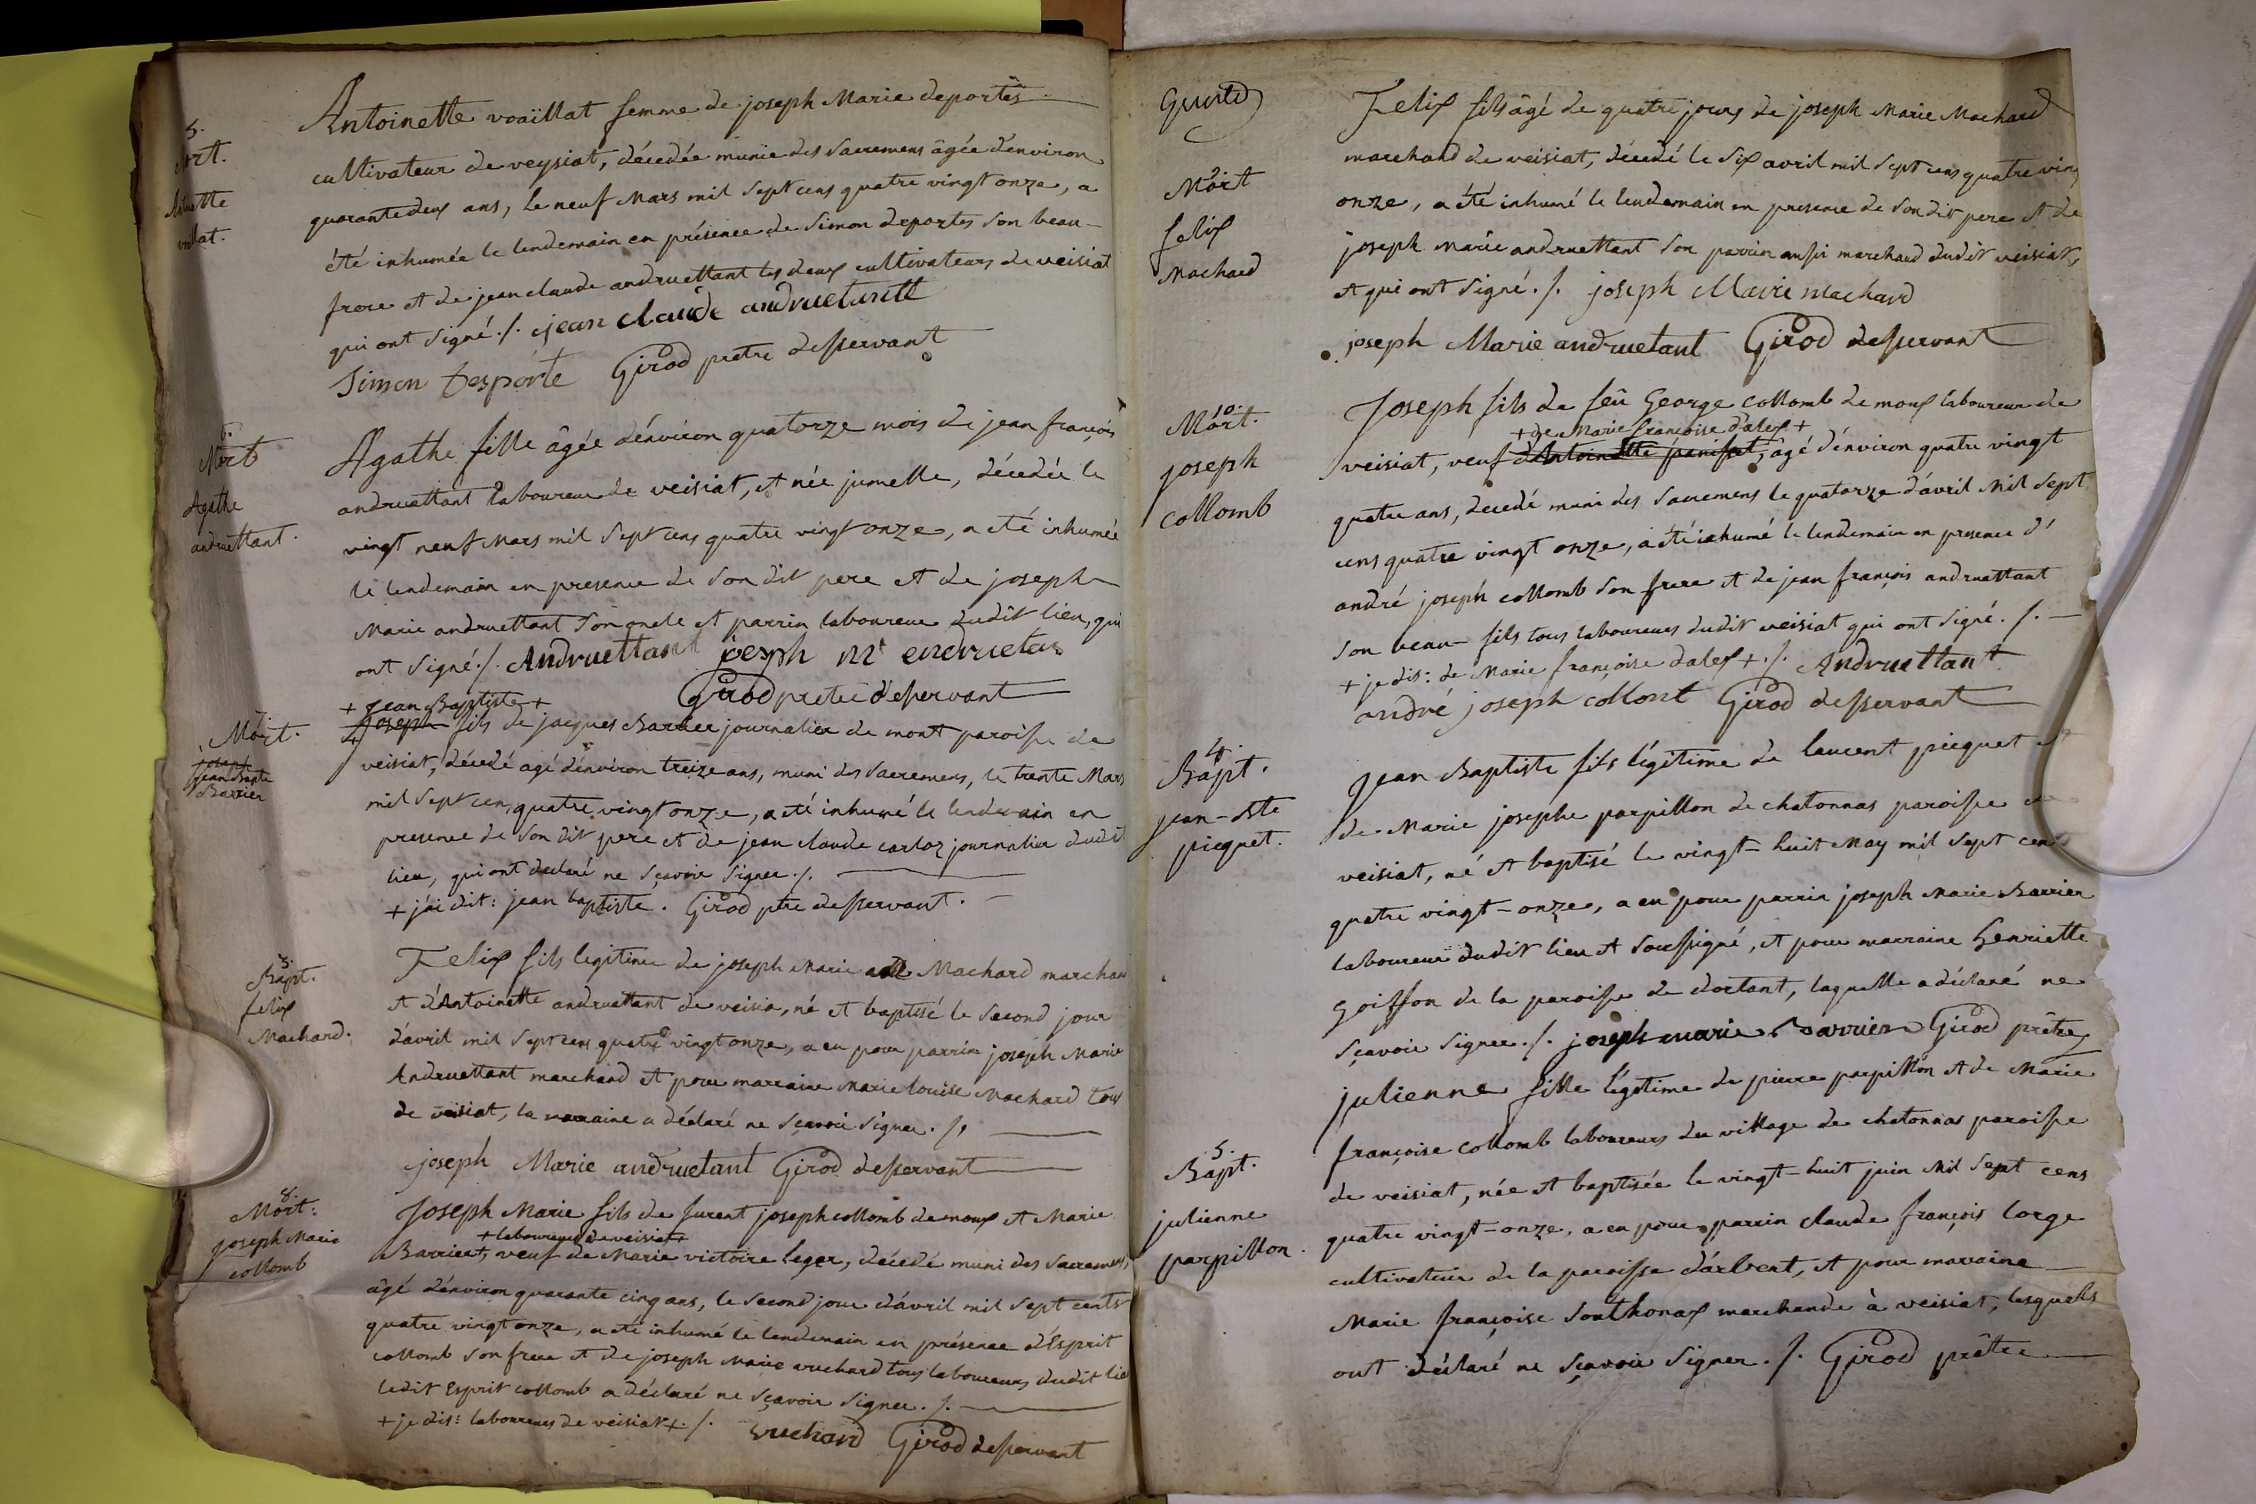 5.
Mort.
Antoinette voaillat femme de joseph Marie deportes
cultivateur de veysiat, décedée munie des Sacremens âgée d'environ
quarante deux ans, le neuf Mars mil Sept cens quatre vingt onze, a
été inhumée le lendemain en présence de Simon deportes Son beau-
frere et de jean claude andruettant les deux cultivateurs de veisiat
qui ont Signé ./. jean claude andruetantt
Simon desporte Girod pretre desservant
6.
Mort
Agathe
andruettant.
Agathe fille âgée d'environ quatorze mois de jean françois
andruettant laboureur de veisiat, et née jumelle, décedée le
vingt neuf Mars mil Sept cens quatre vingt onze, a été inhumée
le lendemain en presence de Son dit pere et de joseph
Marie andruettant Son oncle et parrin laboureur dudit lieu, qui
ont Signé ./. Andruettant joesph mi endruetan
Girod pretre desservant
7.
Mort.
joseph
jean Bapte
Barrier
+ Jean Baptiste +
Joseph fils de jacques Barrier journalier de mont paroisse de
veisiat, décedé agé d'environ treize ans, muni des Sacremens, le trente Mars
mil Sept cens quatre vingt onze, a été inhumé le lendemain en
presence de Son dit pere et de jean claude carloz journalier dudit
lieu, qui ont declaré ne Sçavoir Signer ./.
+ j'ai dit: jean baptiste. Girod ptre desservant.
3.
Bapt.
felix
Machard.
Felix fils legitime de joseph Marie Machard marchand
et d'Antoinette andruettant de veisia, né et baptisé le Second jour
d'avril mil Sept cens quatre vingt onze, a eu pour parrin joseph Marie
Andruettant marchand et pour marraine Marie louise Machard tous
de veisiat, la marraine a déclaré ne Sçavoir Signer. ./.
joseph Marie andruetant Girod desservant
8.
Mort:
Joseph Marie
collomb
Joseph Marie fils de furent joseph collomb demoux et Marie
+ laboureur de veisiat +
Barrier +, veuf de Marie victoire leger, décedé muni des Sacremens,
âgé d'environ quarante cinq ans, le Second jour d'avril mil Sept cents
quatre vingt onze, a été inhumé le lendemain en présence d'Esprit
collomb Son frere et de joseph Marie vuchard tous laboureurs dudit lieu
ledit Esprit collomb a déclaré ne Sçavoir Signer ./.
+ je dis: laboureurs de veisiat +. /.
vuchard Girod desservant
9
Mort
felix
Machard
Felix fils âgé de quatre jours de joseph Marie Machard
marchand de veisiat, décedé le Six avril mil Sept cens quatre ving
onze, a été inhumé le lendemain en presence de Son dit pere et de
joseph Marie andruettant Son parrin aussi marchand dudit veisiat,
et qui ont Signé ./. joseph Marie machard
joseph Marie andruetant Girod desservant
10.
Mort.
joseph
collomb
Joseph fils de feû George collomb de moux laboureur de
+ de Marie françoise dalex +
veisiat, veuf d'Antoinette panisset, âgé d'environ quatre vingt
quatre ans, decedé muni des Sacremens le quatorze d'avril Mil Sept
cens quatre vingt onze, a été inhumé le lendemain en presence d'
andré joseph collomb Son frere et de jean françois andruettant
Son beau-fils tous laboureurs dudit veisiat qui ont Signé ./.
+ je dis: de Marie françoise dalex + ./. Andruettant
andré joseph collont Girod desservant
4.
Bapt.
jean-Bte
picquet.
Jean Baptiste fils légitime de laurent picquet et
de Marie josephe parpillon de chatonnas paroisse de
veisiat, né et baptisé le vingt-huit May mil Sept cent
quatre vingt-onze, a eu pour parrin joseph Marie Barrier
laboureur dudit lieu et Soussigné, et pour marraine henriette
goiffon de la paroisse de dortant, laquelle a déclaré ne
Sçavoir Signer ./. joseph marie Barrier Girod prêtre
5.
Bapt.
julienne
parpillon.
julienne fille légitime de pierre parpillon et de Marie
françoise collomb laboureurs du village de chatonnas paroisse
de veisiat, née et baptisée le vingt-huit juin Mil Sept cens
quatre vingt-onze, a eu pour parrin claude françois lorge
cultivateur de la paroisse d'arbent, et pour marraine
Marie françoise Sonthonax marchande à veisiat, lesquels
ont déclaré ne Sçavoir Signer ./. Girod prêtre